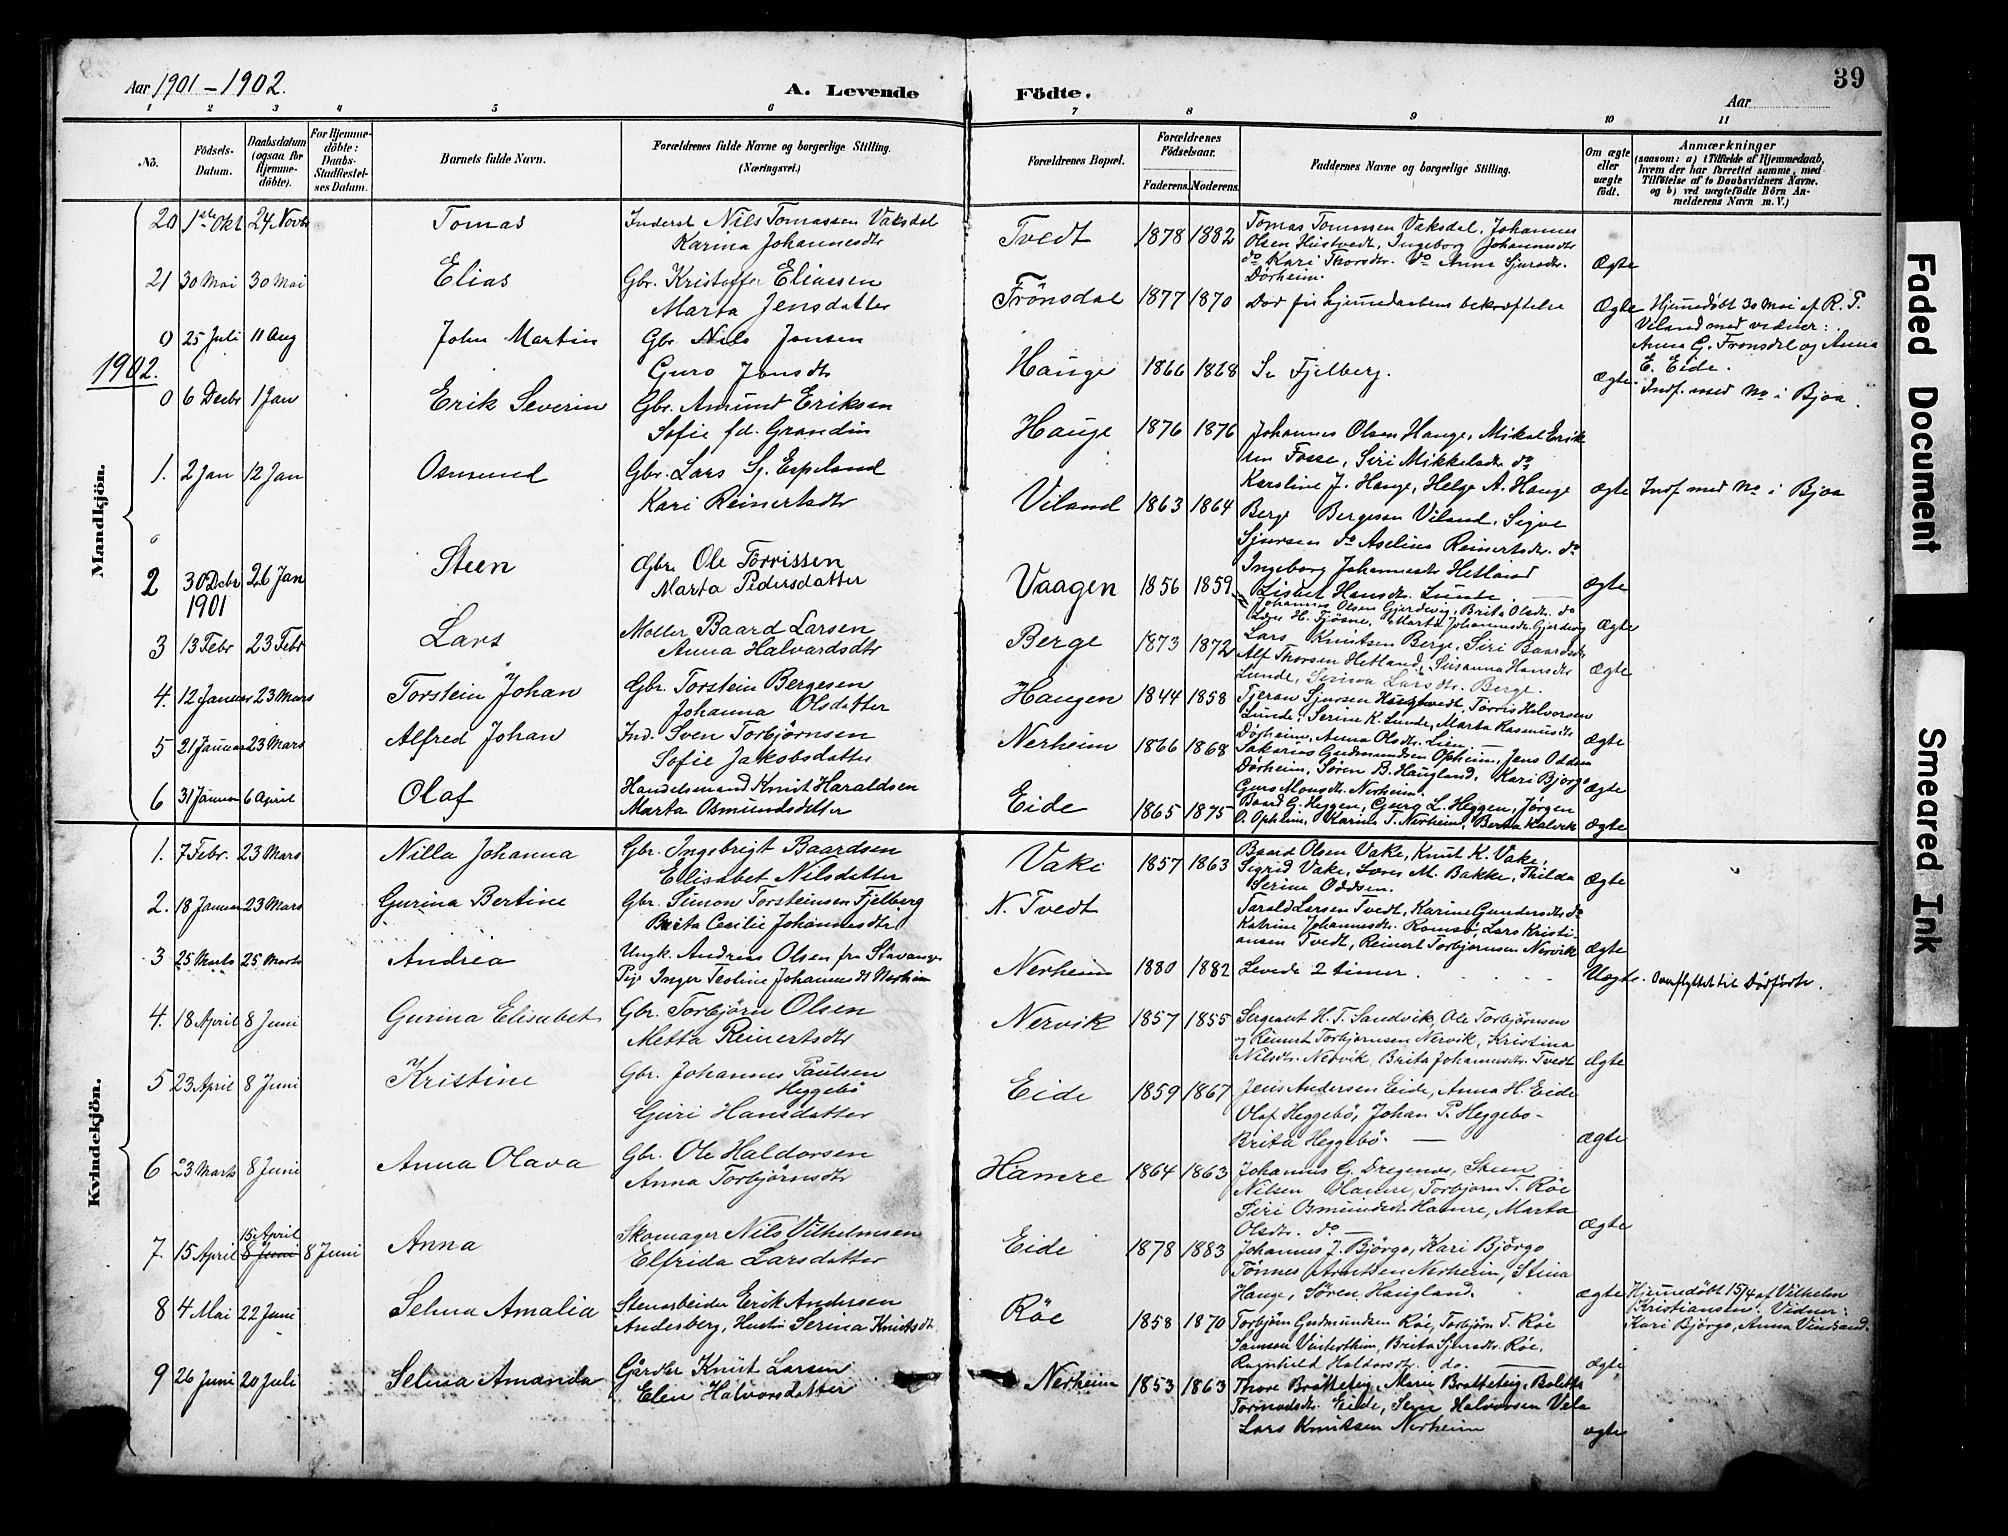 39
Aar 1901-1902.
A. Levende
Födte.
Aar
1 2 3 4 5 6 7 8 9 10 11
No.
Födsels-
Datum.
Daabsdatum
(ogsaa for
Hjemme-
döbte).
For Hjemme-
döbte:
Daabs-
Stadfæstel-
ses Datum.
Barnets fulde Navn.
Forældrenes fulde Navne og borgerlige Stilling.
(Næringsvei.)
Forældrenes Bopæl.
Forældrenes
Födselsaar.
Faderens. Moderens.
Faddernes Navne og borgerlige Stilling.
Om ægte
eller
uægte
födt.
Anmærkninger
(saasom: a) i Tilfælde af Hjemmedaab,
hvem der har forrettet samme, med
Tilföielse af to Daabsvidners Navne,
og b) ved uægtefödte Börn An-
melderens Navn m. V.)
Mandkjön.
20 1ste Okt 24 Novbr Tomas
Inderst Nils Tomassen Vaksdal
Karina Johannesdtr
Tvedt 1878 1882
Tomas Tommsen Vaksdal, Johannes
Olsen Hustvedt, Ingeborg Johannesdtr
do Kari Thorsdtr. do Anna Sjursdtr.
Dörheim. Ægte
21 30 Mai 30 Mai Elias
Gbr. Kristoffer Eliassen
Marta Jensdatter
Frönsdal 1877 1870 Dør før hjemmedaabens bekræftelse Ægte
Hjemmedøbt 30 Mai af R. T.
Viland med vidner:
Anna G. Frønsdal og Anna
E. Eide.
0 25 Juli 11 Aug John Martin
Gbr Nils Jonsen
Guro Jonsdtr
Hauge 1866 1868 Se Fjelberg. Ægte.
Indf. med No i Bjoa.
1902.
0 6 Decbr 1 Jan Erik Severin
Gbr. Amund Eriksen
Sofie fd. Grandin
Hauge 1876 1876
Johannes Olsen Hauge, Mikal Erik
sen Fosse, Siri Mikkelsdtr do
Karoline J. Hauge, Helge A. Hauge ægte Indf med No i Bjoa
1. 2 Jan 12 Jan Osmund
Gbr. Lars Sj. Espeland
Kari Reinertsdtr
Viland 1863 1864
Berge Bergesen Viland, Sigve
Sjursen do Aseline Reinertsdtr. do
Ingeborg Johannesdtr Hetland
Lisbet Hansdtr. Lunde ægte
2 30 Decbr 26 Jan Steen
1901
Gbr. Ole Törrissen
Marta Pedersdatter
Vaagen 1856 1859
Johannes Olsen Gjerdevig, Brita Olsdtr. do
H. Fjøsne, Marta Johannesdtr. Gjerdevig Ægte
3 13 Febr 23 Febr Lars
Møller Baard Larsen
Anna Halvardsdtr
Berge 1873 1872
Lars Knutsen Berge, Siri Baardsdtr
Alf Thorsen Hetland, Susanna Hansdtr
Lunde, Serina Larsdtr. Berge. Ægte
4. 12 Januar 23 Mars Torstein Johan
Gbr. Torstein Bergesen
Johanna Olsdatter
Haugen 1844 1858
Tjeran Sjursen Hustvedt, Törris Halvorsen
Lunde, Serine K. Lunde, Marta Rasmusdtr
Dörheim, Anna Olsdtr. Lien Ægte
5 21 Januar 23 Mars Alfred Johan
Ind. Sven Torbjörnsen
Sofie Jakobsdatter
Nerheim 1866 1868
Sakarias Gudmundsen Opheim, Jens Oddsen
Dörheim, Søren B. Haugland, Kari Bjorgo
Guro Monsdtr. Nerheim. Ægte
6 31 Januar 6 April Olaf
Handelsmand Knut Haraldsen
Marta Osmundsdatter
Eide 1865 1875
Baard G. Heggen, Gjurg L. Heggen, Jörgen
O. Opheim, Karine T. Nerheim, Berta Kalvik Ægte
Kvindekjön.
1. 7 Febr. 23 Mars Nilla Johanna
Gbr. Ingebrigt Baardsen
Elisabet Nilsdatter
Vake 1857 1863
Baard Olsen Vake, Knut K. Vake,
Sigrid Vake, Lars M. Bakke, Thilda
Serine Oddsen. Ægte
2. 18 Januar 23 Mars Gurina Bertine
Gbr. Simon Torsteinsen Fjelberg
Brita Cecilie Johannesdtr
N. Tvedt
Tarald Larsen Tvedt, Karine Gundersdtr do
Katrine Johannesdtr. Romsø, Lars Kristi-
ansen Tvedt, Reinert Torbjørnsen Nervik Ægte
3 25 Marts 25 Marts Andrea
Ungk. Andreas Olsen fra Stavanger
Pige Inger Teoline Johannesdt Nerheim
Nerheim 1880 1882 Levede 2 timer. Uægte. Overflyttet til Dødfødte.
4. 18 April 8 Juni Gurina Elisabet
Gbr. Torbjörn Olsen
Metta Reinertsdtr
Nervik 1857 1855
Sergeant H. T. Sandvik, Ole Torbjørnsen
og Reinert Torbjørnsen Nervik, Kristina
Nilsdtr. Nervik, Brita Johannesdtr. Tvedt Ægte
5 23 April 8 Juni Kristine
Gbr. Johannes Paulsen
Heggebö
Guri Hansdatter
Eide 1859 1867
Jens Andersen Eide, Anna H. Eide
Olaf Heggebö, Johan P. Heggebo-
Brita Heggebö. Ægte
6 23 Marts 8 Juni Anna Olava
Gbr. Ole Haldorsen
Anna Torbjörnsdtr
Hamre 1864 1863
Johannes G. Dregenes, Steen
Nilsen Hamre, Torbjørn T. Röe
Siri Osmundsdtr Hamre, Marta
Olsdtr. do Ægte
7. 15 April 15 April 8 Juni 8 Juni Anna
Skomager Nils Vilhelmsen
Elfrida Larsdatter
Eide 1878 1883
Johannes J. Björgo, Kari Björgo
Tönnes Arntsen Nerheim, Stina
Hauge, Søren Haugland. ægte
Hjemmdøbt 15/4 af Vilhelm
Kristiansen. Vidner:
Kari Björgo, Anna Vindsand.
8 4 Mai 22 Juni Selma Amalia
Stenarbeider Erik Andersen
Anderberg, Hustr Serina Knutsdtr
Röe 1858 1870
Torbjörn Gudmundsen Röe, Torbjörn T. Röe
Samson Vinterthun, Brita Sjursdtr. Röe,
Ragnhild Haldorsdtr. do. ægte
9 26 Juni 20 Juli Selma Amanda
Gårdbr Knut Larsen
Elen Halvorsdatter
Nerheim 1853 1863
Thore Bratteteig, Marie Bratteteig, Bolette
Tormodsdtr. Eide, Halvorsen Vela
Lars Knutsen Nerheim ægte
Faded Document
Smeared Ink